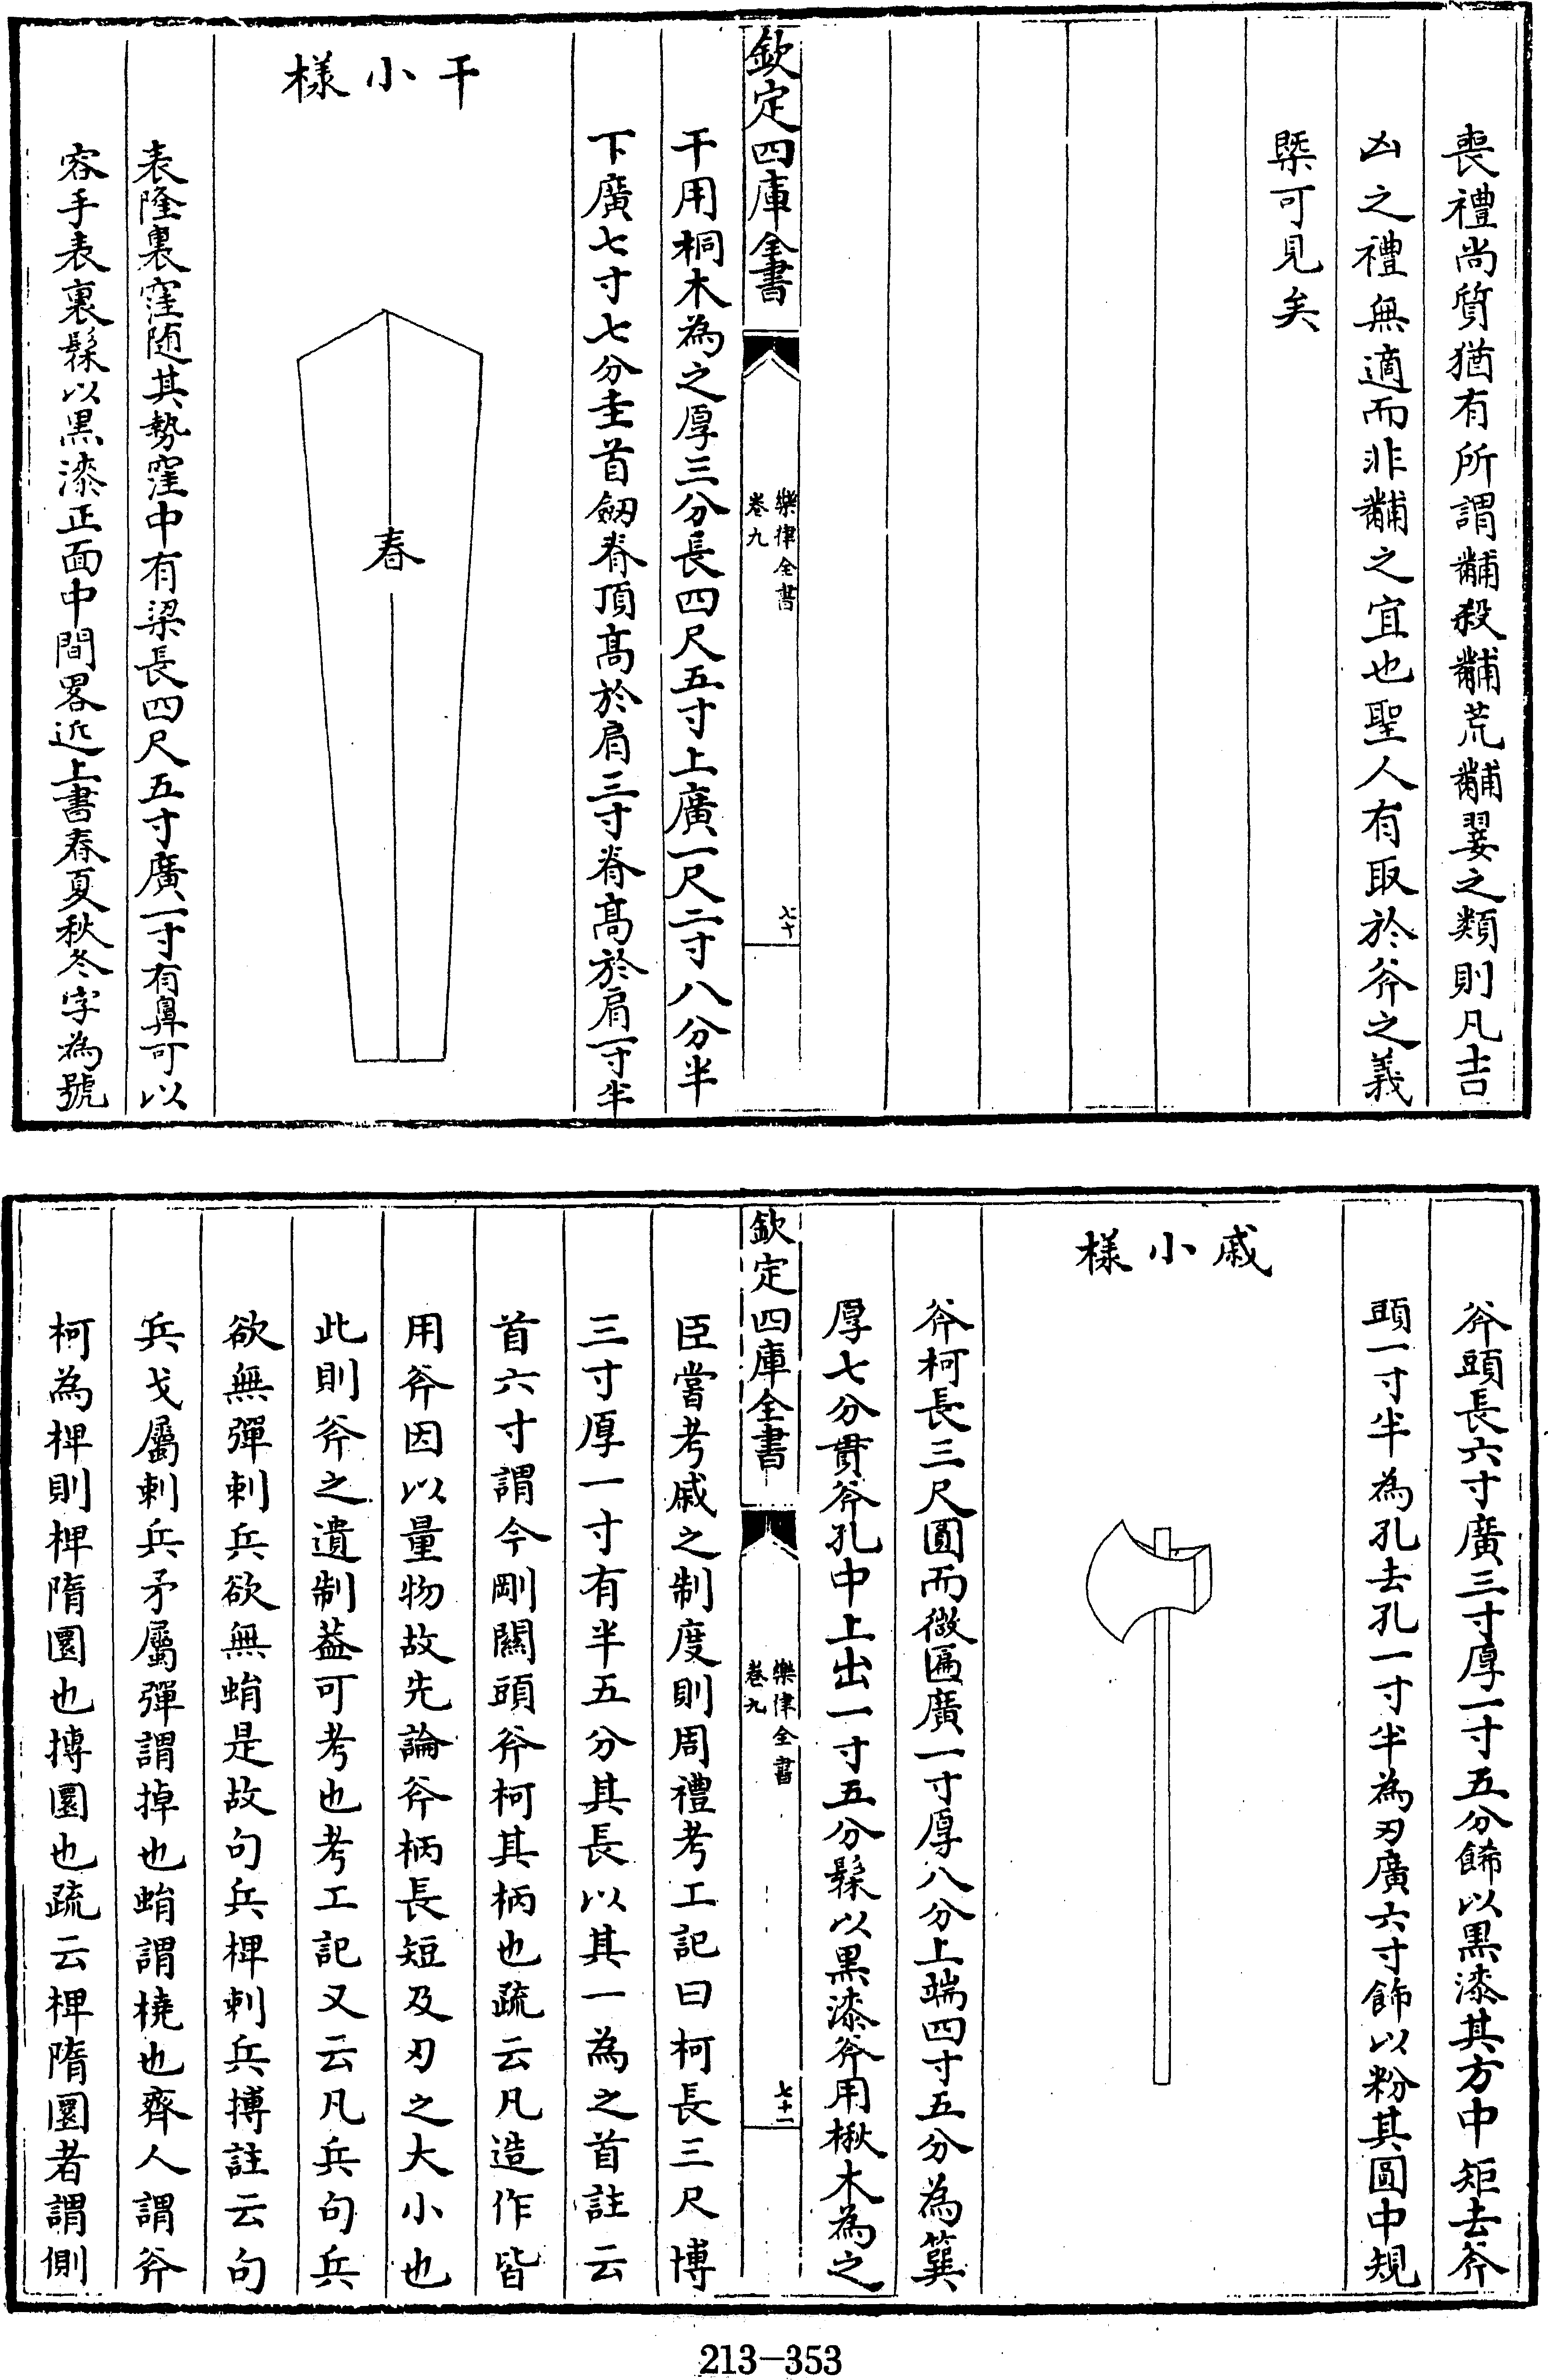 喪禮尚質猶有所謂黼殺黼荒黼翣之類則凡吉
凶之禮無適而非黼之宜也聖人有取於斧之義
槩可見矣
欽定四庫全書
樂律全書
卷九
七十
干用桐木為之厚三分長四尺五寸上廣一尺二寸八分半
下廣七寸七分圭首劒脊頂髙於肩三寸脊髙於肩一寸半
干小様
春
表隆裏窪随其勢窪中有梁長四尺五寸廣一寸有鼻可以
容手表裏髹以黒漆正面中間畧近上書春夏秋冬字為號
斧頭長六寸廣三寸厚一寸五分餙以黒漆其方中矩去斧
頭一寸半為孔去孔一寸半為刃廣六寸飾以粉其圓中規
戚小様
斧柯長三尺圓而微匾廣一寸厚八分上端四寸五分為篹
厚七分貫斧孔中上出一寸五分髹以黒漆斧用楸木為之
欽定四庫全書
樂律全書
卷九
七十一
臣嘗考戚之制度則周禮考工記曰柯長三尺博
三寸厚一寸有半五分其長以其一為之首註云
首六寸謂今剛關頭斧柯其柄也疏云凡造作皆
用斧因以量物故先論斧柄長短及刃之大小也
此則斧之遺制葢可考也考工記又云凡兵句兵
欲無彈刺兵欲無蜎是故句兵椑刺兵摶註云句
兵戈屬刺兵矛屬彈謂掉也蜎謂橈也齊人謂斧
柯為椑則椑隋圜也摶圜也疏云椑隋圜者謂側
213-353